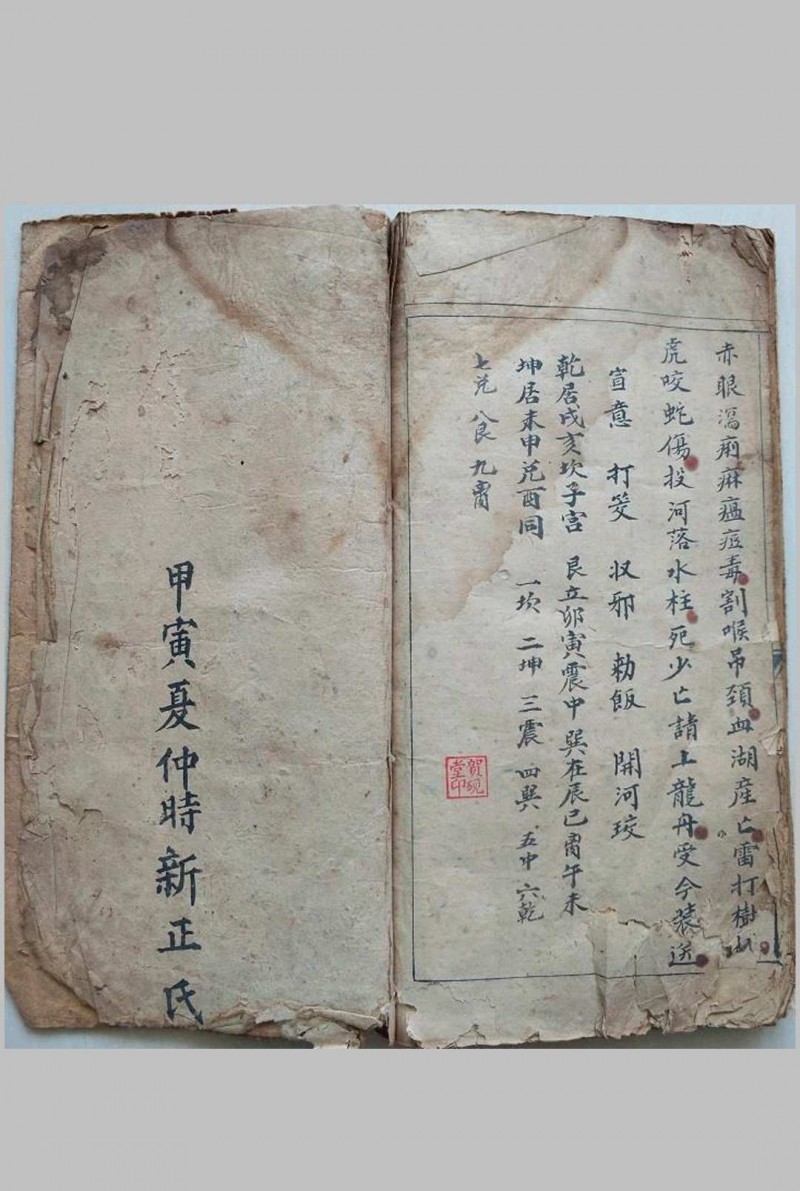 赤眼瀉痢痳瘟痘毒割喉吊頚血湖産亡雷打樹
虎咬蛇傷投河落水柱死少亡請上龍舟受今裝送
宣意 打筊 収邪 勅飯 開河珓
乾居戌亥坎子宮 艮立卯寅震中巽在辰巳离午未
坤居未申兌酉同 一坎 二坤 三震 四巽 五中 六乾
七兌 八艮 九离
賀硯堂印
甲寅夏仲時新正氏